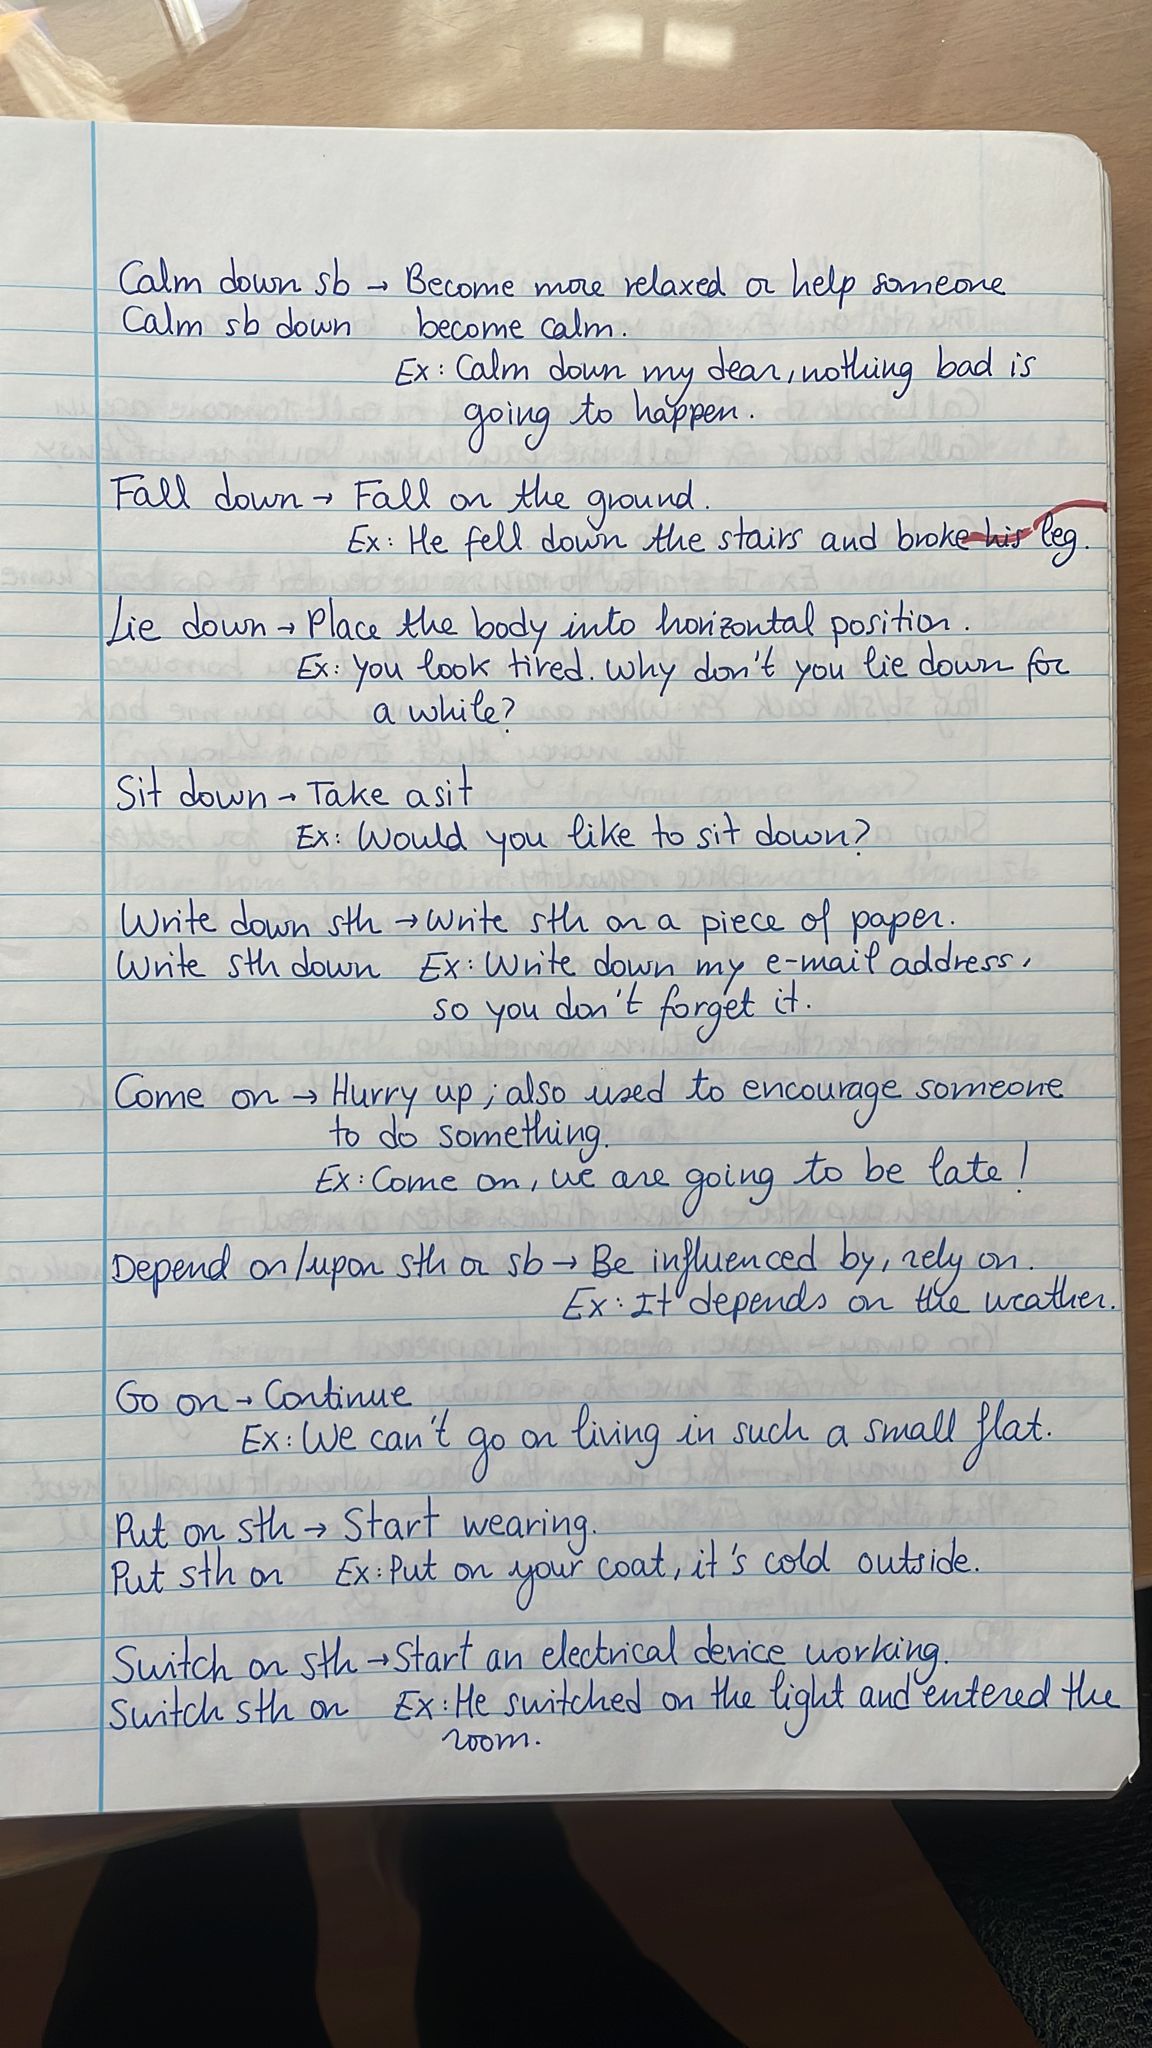 Calm down sb → Become more relaxed or help someone
Calm sb down become calm.
Ex: Calm down my dear, nothing bad is
going to happen.
Fall down → Fall on the ground.
Ex: He fell down the stairs and broke his leg.
Lie down → Place the body into horizontal position.
Ex: You look tired. Why don't you lie down for
a while?
Sit down → Take a sit
Ex: Would you like to sit down?
Write down sth → Write sth on a piece of paper.
Write sth down Ex: Write down my e-mail address,
so you don't forget it.
Come on → Hurry up ; also used to encourage someone
to do something.
Ex: Come on, we are going to be late!
Depend on/upon sth or sb → Be influenced by, rely on.
Ex: It depends on the weather.
Go on → Continue
Ex: We can't go on living in such a small flat.
Put on sth → Start wearing.
Put sth on Ex: Put on your coat, it's cold outside.
Switch on sth → Start an electrical device working.
Switch sth on Ex: He switched on the light and entered the
room.